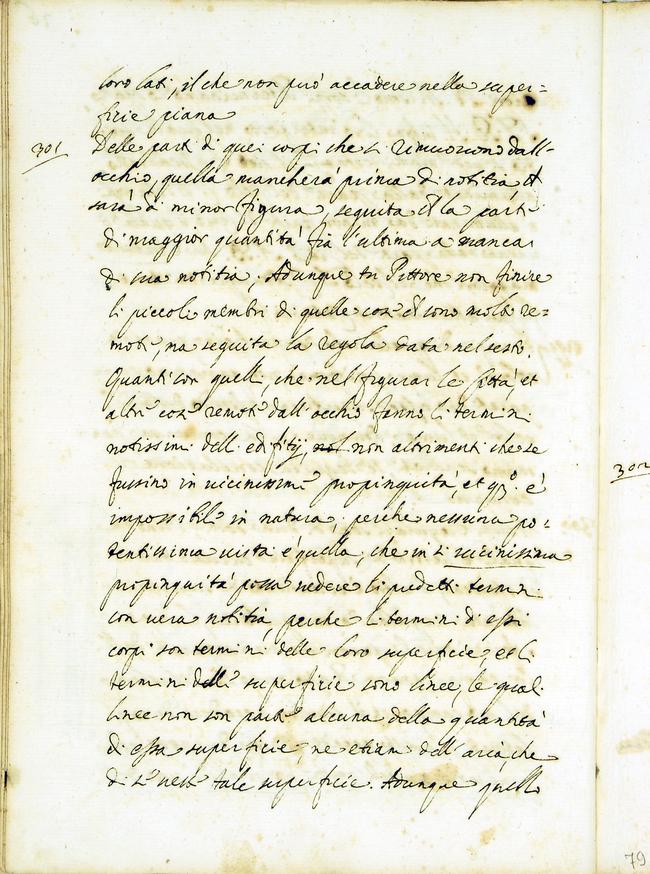 loro lati, il che non può accadere nella super=
ficie piana
301
Delle parti di quei corpi che si rimuovono dall'
occhio, quella mancherà prima di notitia, ch'
sarà di minor figura, seguita ch' la parte
di maggior quantità fia l'ultima a mancar
di sua notitia, Adunque tu Pittore non finire
li piccoli membri di quelle cose ch' sono molto re=
mote, ma seguita la regola data nel sesto.
Quanti son quelli, che nel figurar le Città, et
altre cose remote dall'occhio fanno li termini
notissimi delli edifitij, non altrimenti che se
fussino in vicinissime propinquità, et q.to è
impossibile in natura, perche nessuna po=
tentissima vista è quella, che in sì vicinissima
propinquità possa vedere li predetti termini
con vera notitia, perche li termini di essi
corpi son termini delle loro superficie, et li
termini delle superficie sono linee, le quali
linee non son parte alcuna della quantità
di essa superficie, ne etiam dell'aria, che
di sè veste tale superficie. Adunque quello
302
79